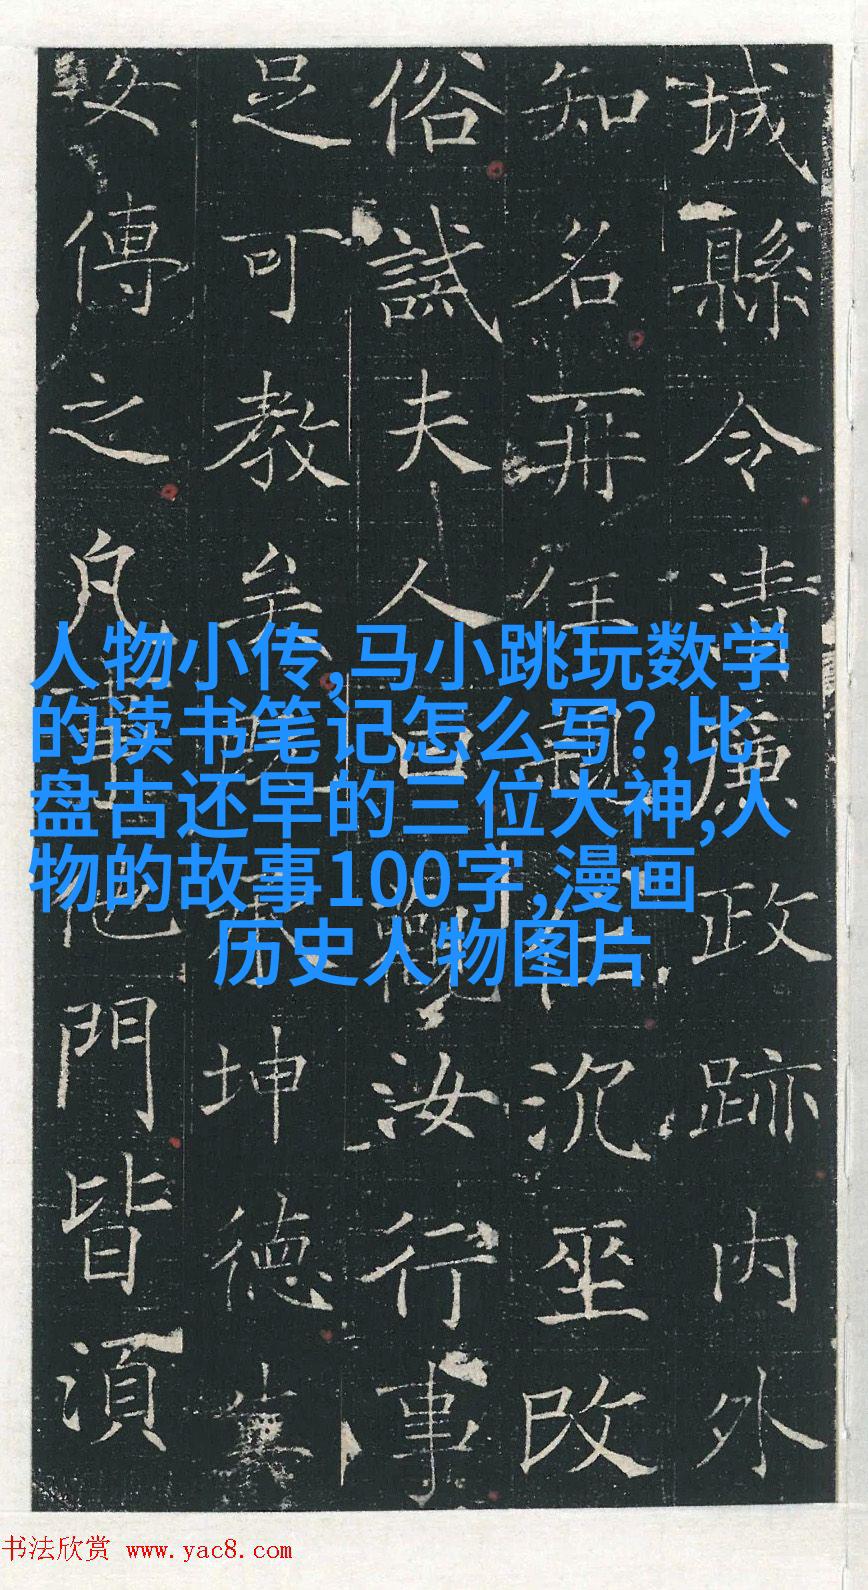 城縣令清廉政跡內外
知名再任仕沉坐改
俗誠夫人曰觀汝行事
足可教矣坤德
傳之凡事他門皆須
人物小传,马小跳玩数学
的读书笔记怎么写?,比
盘古还早的三位大神,人
物的故事100字,漫画
历史人物图片
书法欣赏 www.yac8.com